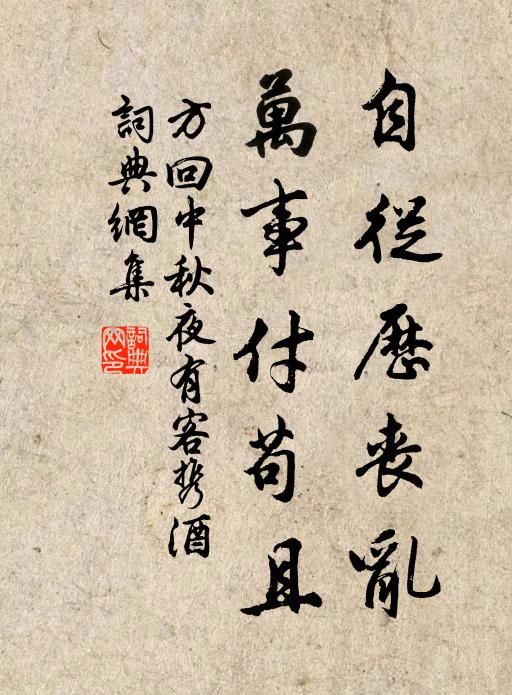 自從歷喪亂
萬事付苟且
方回中秋夜有客携酒
詞典網集
詞典网印